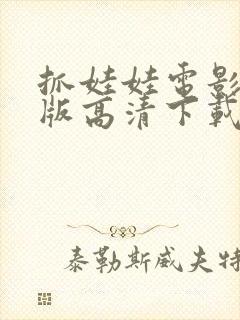 抓娃娃电影
版高清下载
泰勒斯威夫特